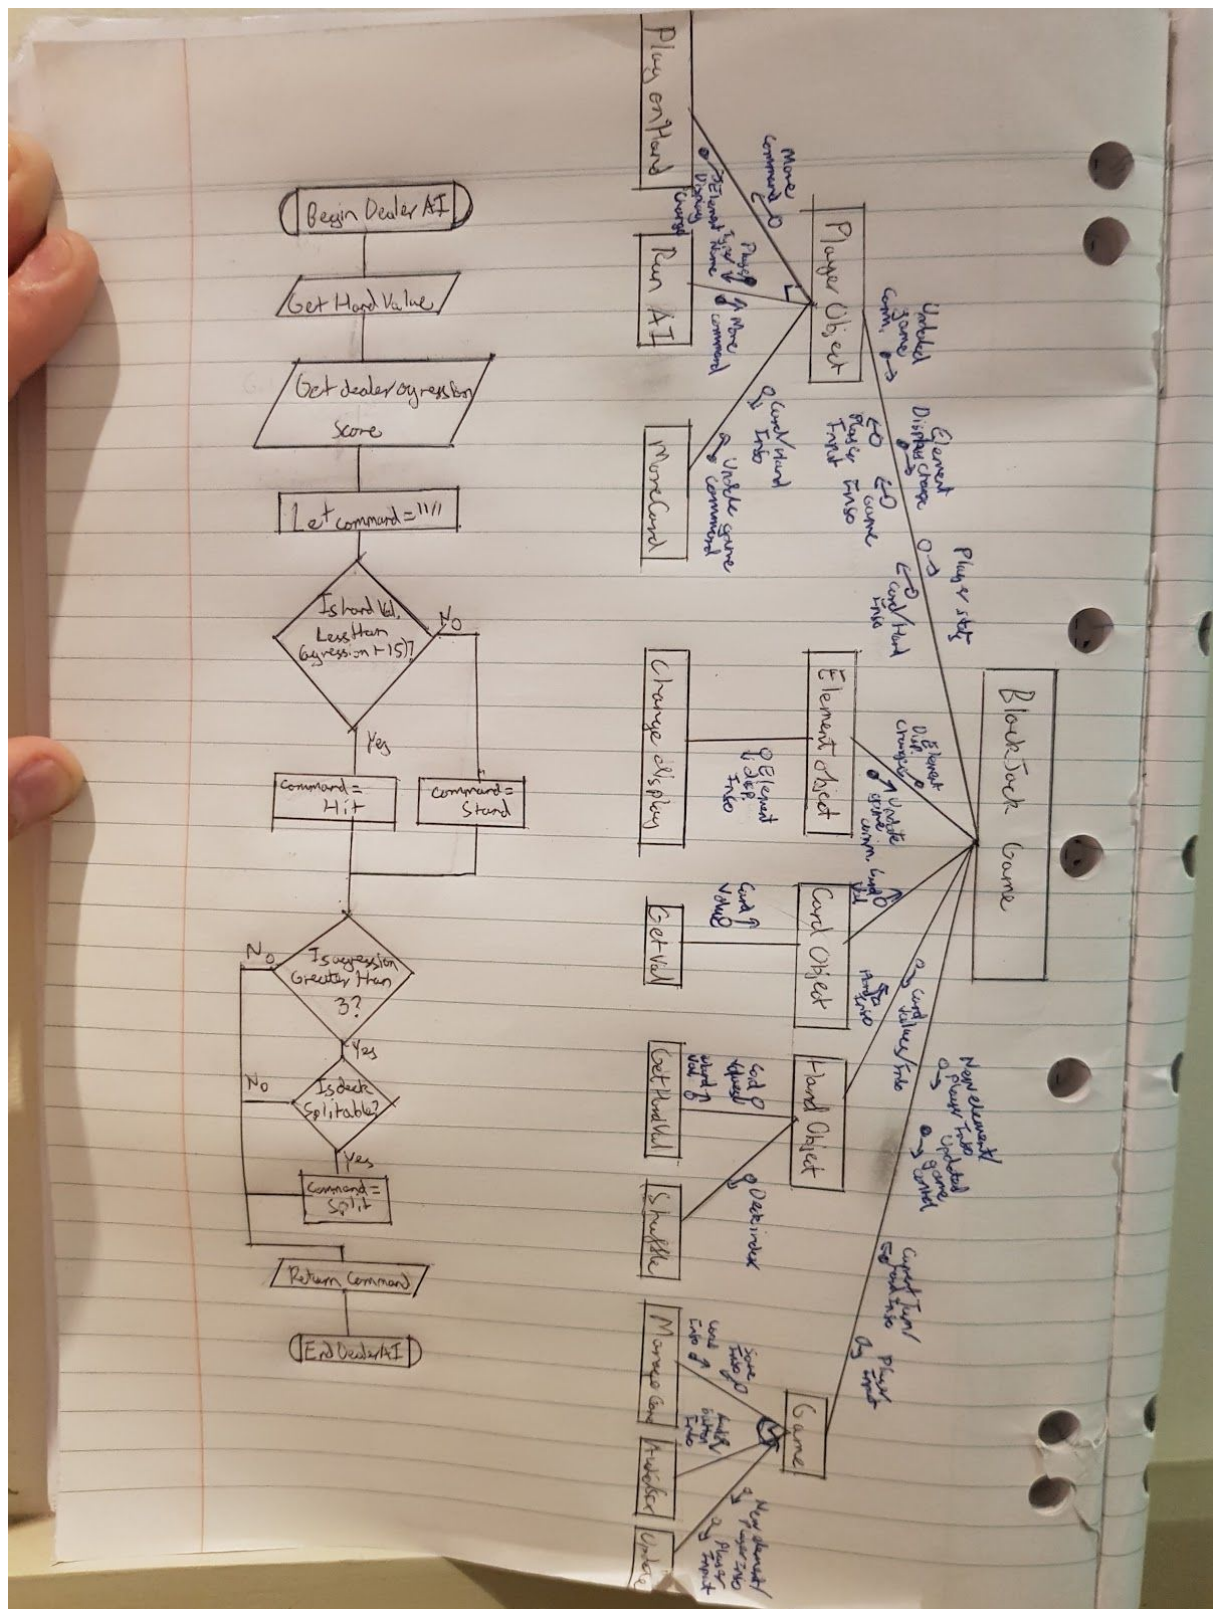 Begin Dealer AI
Get Hand Value
Get dealer agression
Score
Let command = ""
Is hand Val.
Less than
(agression + 15)?
No
Yes
command =
Hit
command =
Stand
Is agression
Greater than
3?
No
Yes
Is deck
Splitable?
No
Yes
command =
Split
Return Command
End Dealer AI
BlackJack Game
Player Object
Element object
Card Object
Hand Object
Game
Play on Hand
Run AI
MoveCard
Change display
Get Val
GetHandVal
Shuffle
Update
Move
command
Element
Display
Change
Move
command
Card/Hand
Info
Update game
command
Updated
game
comm.
Element
Display change
Player
Input
Game
Info
Player stats
Card/Hand
Info
Element
Disp.
change
Update
game
comm.
Element
disp.
Info
Card
Val
Card
Value
Hand
Info
Card
Values/Info
Hand
Val
Deck index
New element/
Player Info
Updated
game
Current Turn/
Info
Player
Input
Card
Info
Info
New element/
Player Info
Player
Input